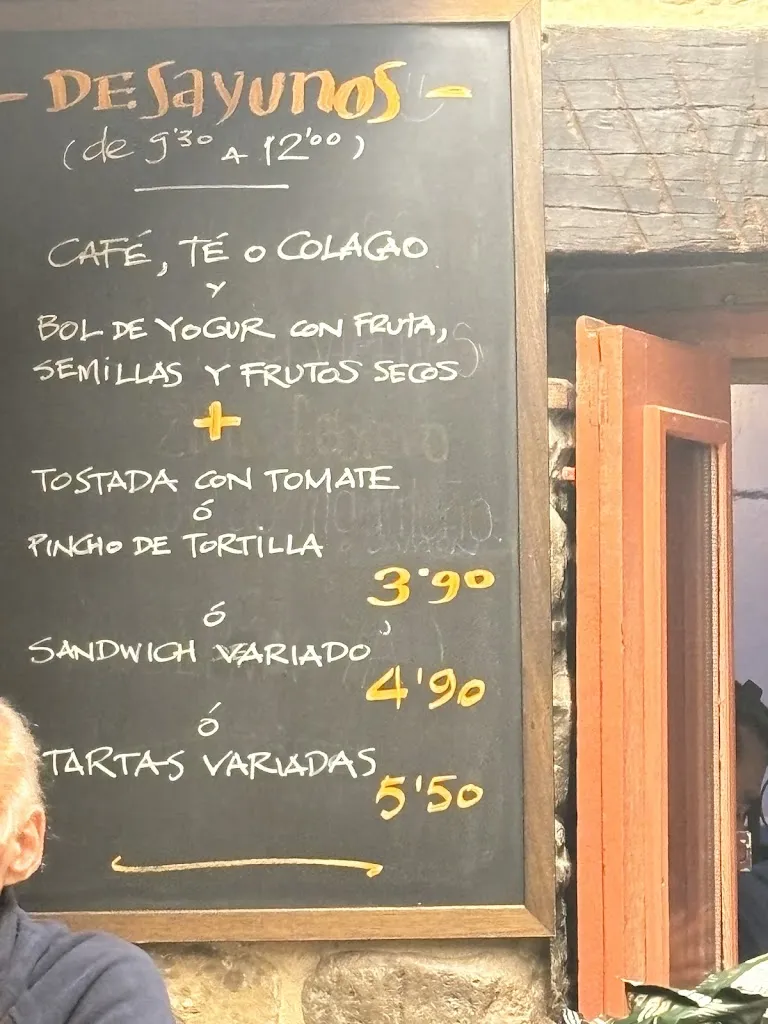 - DESayunos -
(de 9'30 A 12'00)
CAFÉ, TÉ o COLACAO
Y
BOL DE YOGUR CON FRUTA,
SEMILLAS Y FRUTOS SECOS
+
TOSTADA CON TOMATE
ó
PINCHO DE TORTILLA
3'90
ó
SANDWICH VARIADO
4'90
ó
TARTAS VARIADAS
5'50